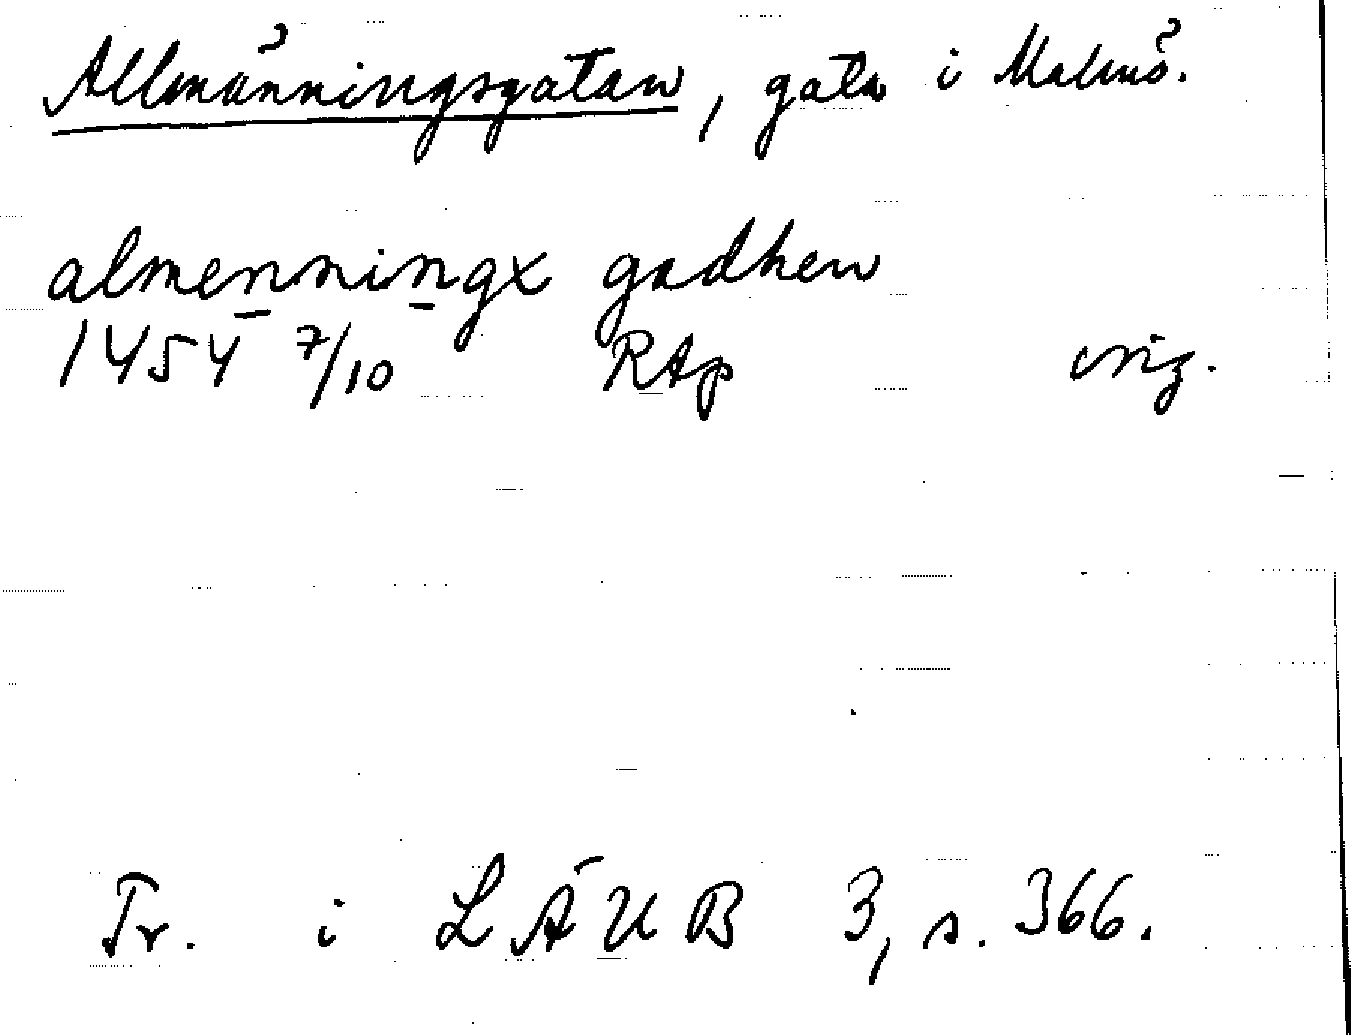 Allmänningsgatan, gata i Malmö.
almenningx gadhen
1454 7/10 RAp orig.
Tr. i LÄUB 3, s. 366.